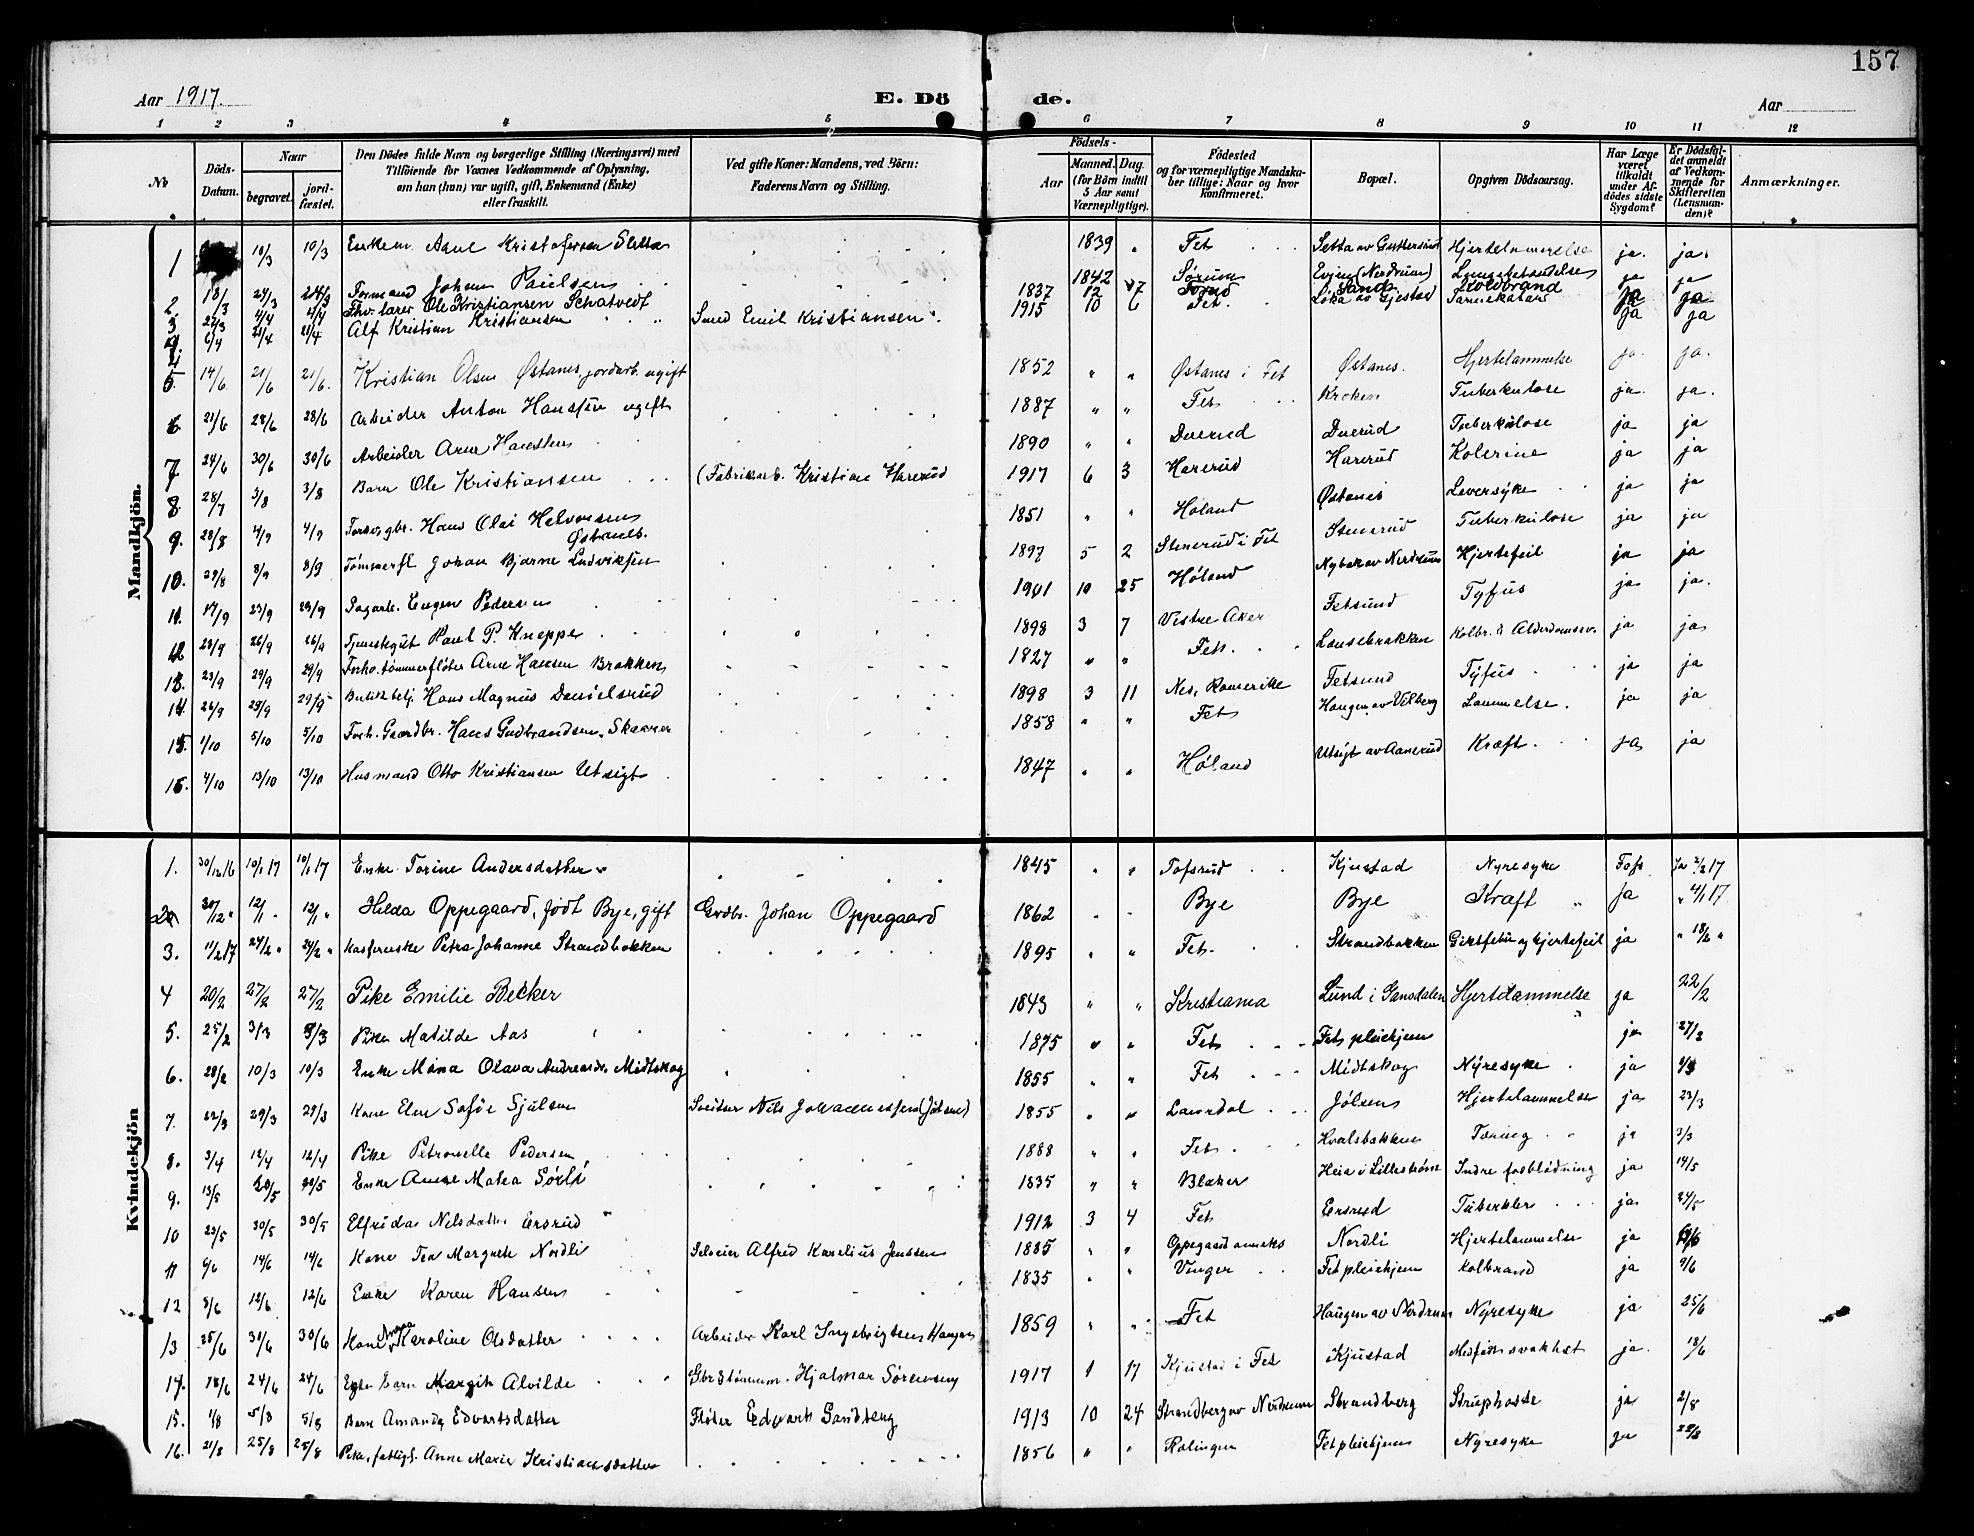 157
Aar 1917.
E. Döde.
Aar
1 2 3 4 5 6 7 8 9 10 11 12
No
Döds-Datum.
Naar
begravet.
jord-fæstet.
Den Dödes fulde Navn og borgerlige Stilling (Næringsvei) med Tilföiende for Voxnes Vedkommende af Oplysning, om han (hun) var ugift, gift, Enkemand (Enke) eller fraskilt.
Ved gifte Koner: Mandens, ved Börn: Faderens Navn og Stilling.
Födsels-
Aar
Maaned. Dag.
(for Börn indtil 5 Aar samt Værnepligtige).
Födested og for værnepligtige Mandskaber tillige: Naar og hvor konfirmeret.
Bopæl.
Opgiven Dödsaarsag.
Har Læge været tilkaldt under Afdödes sidste Sygdom?
Er Dödsfaldet anmeldt af Vedkommende for Skifteretten (Lensmanden)?
Anmærkninger.
Mandkjön.
1 10/3 10/3 Enkem. Arne Kristofersen Sletta 1839 " Fet Sletta av Guttersrud Hjertelammelse ja. ja.
2. 18/3 24/3 24/3 Formand Johan Paulsen 1842 Sørum Evjen (Nerdrum) Lungebetændelse ja ja
3 27/3 4/4 4/4 Fhv. lærer Ole Kristiansen Schatvedt 1837 12 7 Sand Koldbrand ja ja
4. 6/4 21/4 21/4 Alf Kristian Kristiansen Smed Emil Kristiansen 1915 10 6 Fet Løka av Gjestad Tarmekatar ja ja
5. 14/6 21/6 21/6. Kristian Olsen Østanes, jordarb. ugift 1852 " " Østanes i Fet Østanes. Hjertelammelse ja. ja.
6. 21/6 28/6 28/6 Arbeider Anton Hansen ugift 1887 " " Fet Kroken Tuberkulose ja. ja.
7 24/6 30/6 30/6 Arbeider Arne Hansen 1890 " " Duerud Duerud Tuberkulose ja ja
8. 28/7 3/8 3/8 Barn Ole Kristiansen (Fabrikarb. Kristian Harerud 1917 6 3 Harerud Harerud Kolerine ja ja
9. 28/8 4/9 4/9 Forsørgbr. Hans Olai Halvorsen Østanes. 1851 " " Høland Østanes Leversyke ja ja
10. 29/8 8/9 8/9 Tømmerfl. Johan Bjarne Ludviksen 1897 5 2 Stenerud i Fet Stenerud Tuberkulose ja ja
11. 17/9 23/9 23/9 Sagarb. Eugen Pedersen 1901 10 25 Høland Nybak av Nerdrum Hjertefeil ja ja
12 23/9 26/9 26/9 Tjenestegut Paul P. Kneppe 1898 3 7 Vestre Aker Fetsund Tyfus ja ja.
13. 23/9 29/9 29/9 Fhv. tømmerfløter Arne Hansen Brakken 1827 " " Fet. Lausebrakken Kolbr. & Alderdomssv. ja ja
14. 26/9 29/9 29/9 Butikbetj. Hans Magnus Danielsrud 1898 3 11 Nes, Romerike Fetsund Tyfus ja ja
15. 1/10 5/10 5/10 Forh. Gaardbr. Hans Gudbrandsen Skavner 1858 " " Fet Haugen av Vilberg Lammelse. ja ja
16. 4/10 13/10 13/10 Husmand Otto Kristiansen Utsigt 1847 " " Høland Utsigt av Aanerud Kræft ja ja
Kvindekjön
1. 30/12 16 10/1 17 10/1 17 Enke Torine Andersdatter 1845 " " Tofsrud Kjustad Nyresyke Ja 2/2 17
2. 30/12 " 12/1 " 12/1 " Hilda Oppegaard, født Bye, gift Grdbr. Johan Oppegaard 1862 Bye Bye Kræft ja " 4/1 17
3. 11/2 17 24/2 " 24/2 " Petra Johanne Strandbakken 1895 " " Fet. Strandbakken Giktfeber og hjertefeil ja " 18/2 "
4 20/2 27/2 27/2 Pike Emilie Becker 1843 " " Kristiania Lund i Gansdalen Hjertelammelse ja 22/2
5. 25/2 3/3 3/3 Pike Matilde Aas 1875 " " Fet Fet pleiehjem ja 27/2
6. 28/2 10/3 10/3 Enke Mina Olava Andreasdtr Midtskog 1855 " " Fet Midtskog Nyresyke ja
7. 22/3 29/3 29/3 Kone Elen Sofie Sjølsen Sveitser Nils Johannessen (Jølsen) 1855 " " Laurdal Jølsen Hjertelammelse ja 23/3
8. 3/4 12/4 12/4 Pike Petronelle Pedersen 1888 " " Fet. Kvalsbakken Tæring ja 3/3
9. 13/5 20/5 20/5 Enke Anne Matea Sørli 1835 " " Blaker Heia i Lillestrøm Indre forblødning ja 14/5
10 23/5 30/5 30/5 Elfrida Nilsdatter Ersrud 1912 3 4 Fet Ersrud Tuberkler ja 24/5
11 6/6 14/6 14/6 Kone Tea Margrete Nordli Seleier Alfred Karelius Jenssen 1885 " " Oppegaard anneks Nordli Hjertelammelse ja
12 5/6 12/6 12/6 Enke Karen Hansen 1835 " " Vinger Fet pleiehjem Kolbrand ja 9/6
13 25/6 30/6 30/6 Kone Anna Karoline Olsdatter Arbeider Karl Ingebrigtsen Haugen 1859 " " Fet Haugen av Nerdrum Nyresyke ja 25/6
14. 18/6 24/6 24/6 Egte Barn Margit Alvilde Gbr. & tømmerm. Hjalmar Sørensen 1917 1 17 Kjustad i Fet Kjustad Medfødt svakhet ja. 18/6
15. 1/8 5/8 5/8 Barn Amanda Edvartsdatter Fløter Edvart Sandberg 1913 10 24 Strandberg av Nerdrum Strandberg Struphoste ja 2/8
16. 21/8 25/8 25/8 Pike, fattigl. Anne Marie Kristiansdatter 1856 " " Rælingen Fet pleiehjem Nyresyke ja 22/8